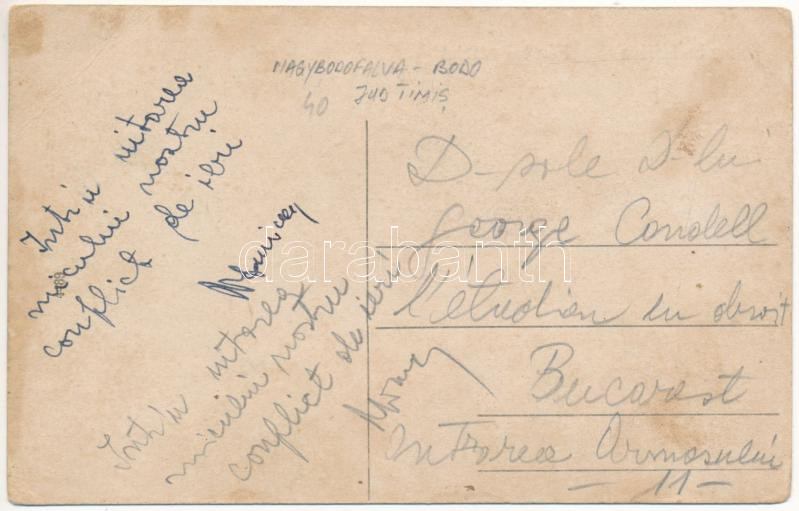 NAGYBODOFALVA - BODO
40 JUD TIMIȘ
Într'u uitarea
micului nostru
conflict de ieri
Într'u uitarea
micului nostru
conflict de ieri
D-sale D-lui
George Condell
l'étudien en droit
Bucarest
Intrarea Armasului
- 11 -
darabanth